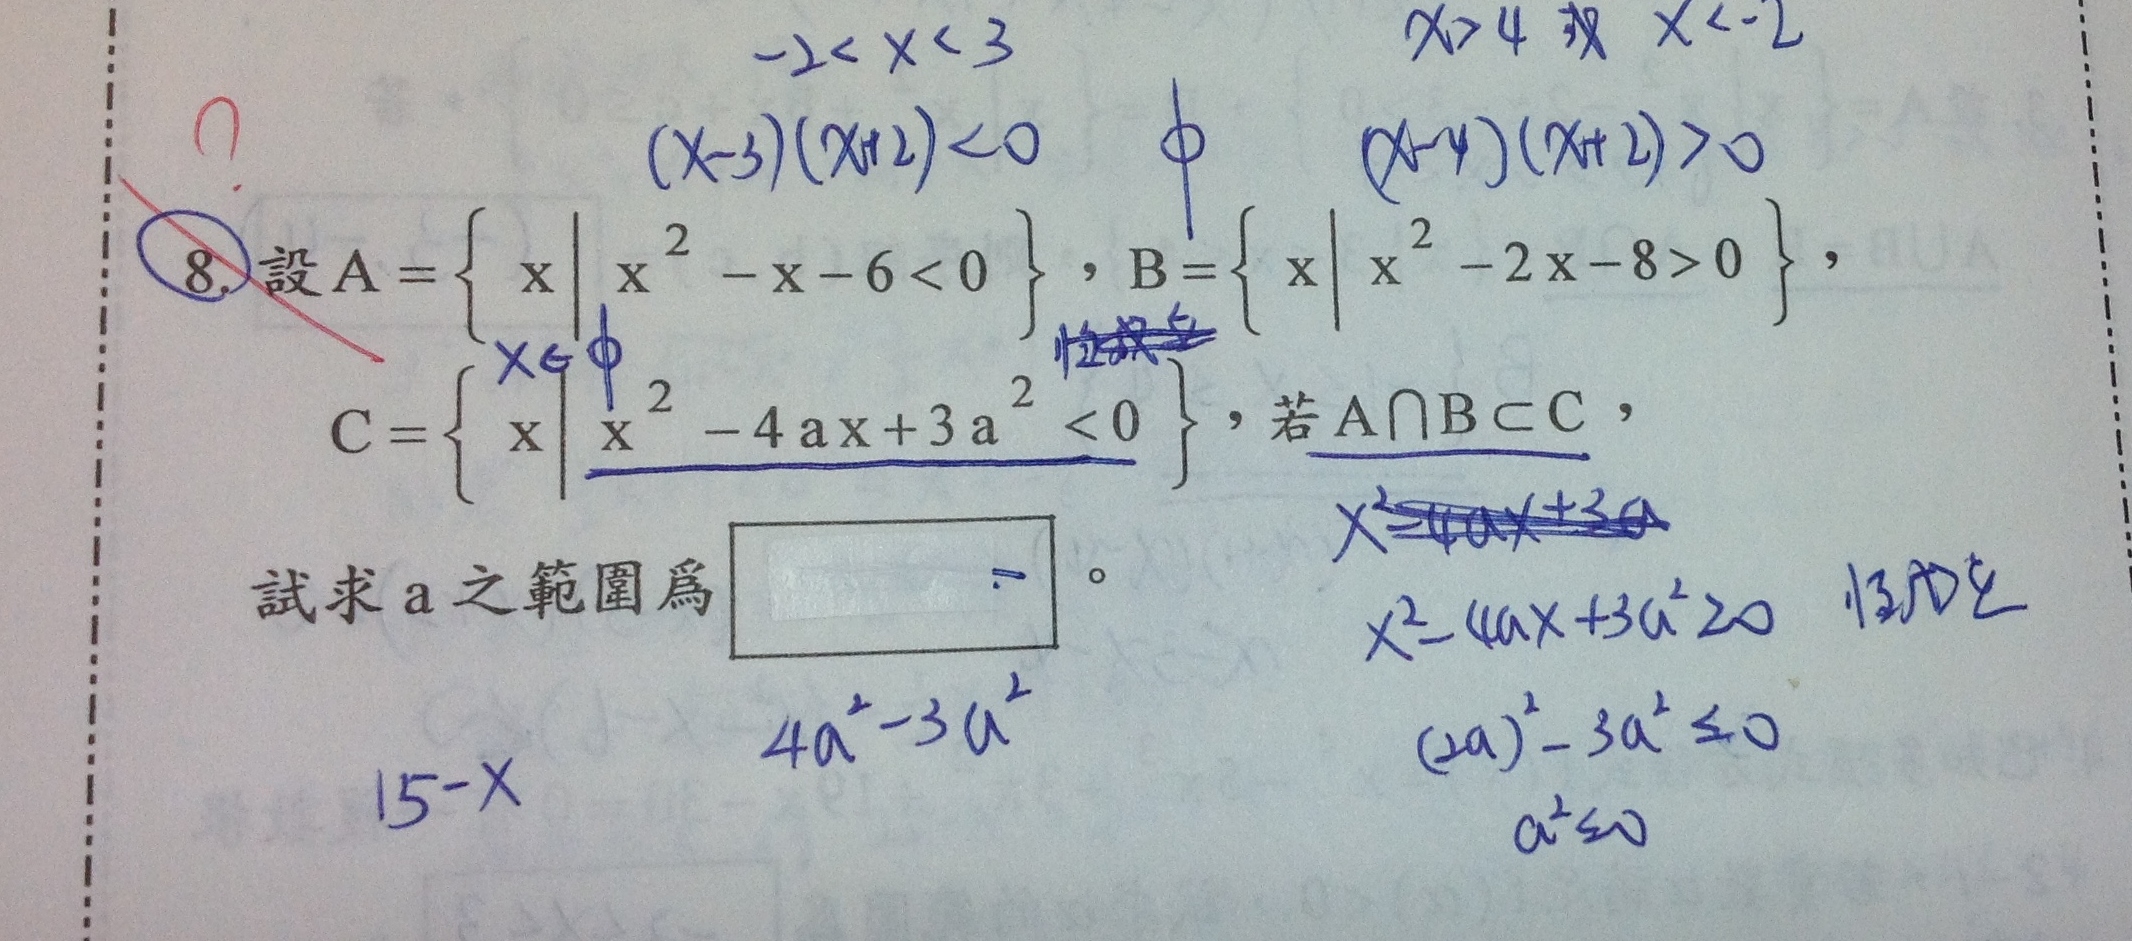 -2 < x < 3
x > 4 或 x < -2
?
(x-3)(x+2) < 0
ϕ
(x-4)(x+2) > 0
8. 設 A = { x | x² - x - 6 < 0 }，B = { x | x² - 2x - 8 > 0 }，
x ∈ ϕ
C = { x | x² - 4ax + 3a² < 0 }，若 A∩B⊂C，
x² - 4ax + 3a
試求 a 之範圍爲 。
x² - 4ax + 3a² ≥ 0 恆成立
4a² - 3a²
(2a)² - 3a² ≤ 0
15 - x
a² ≤ 0